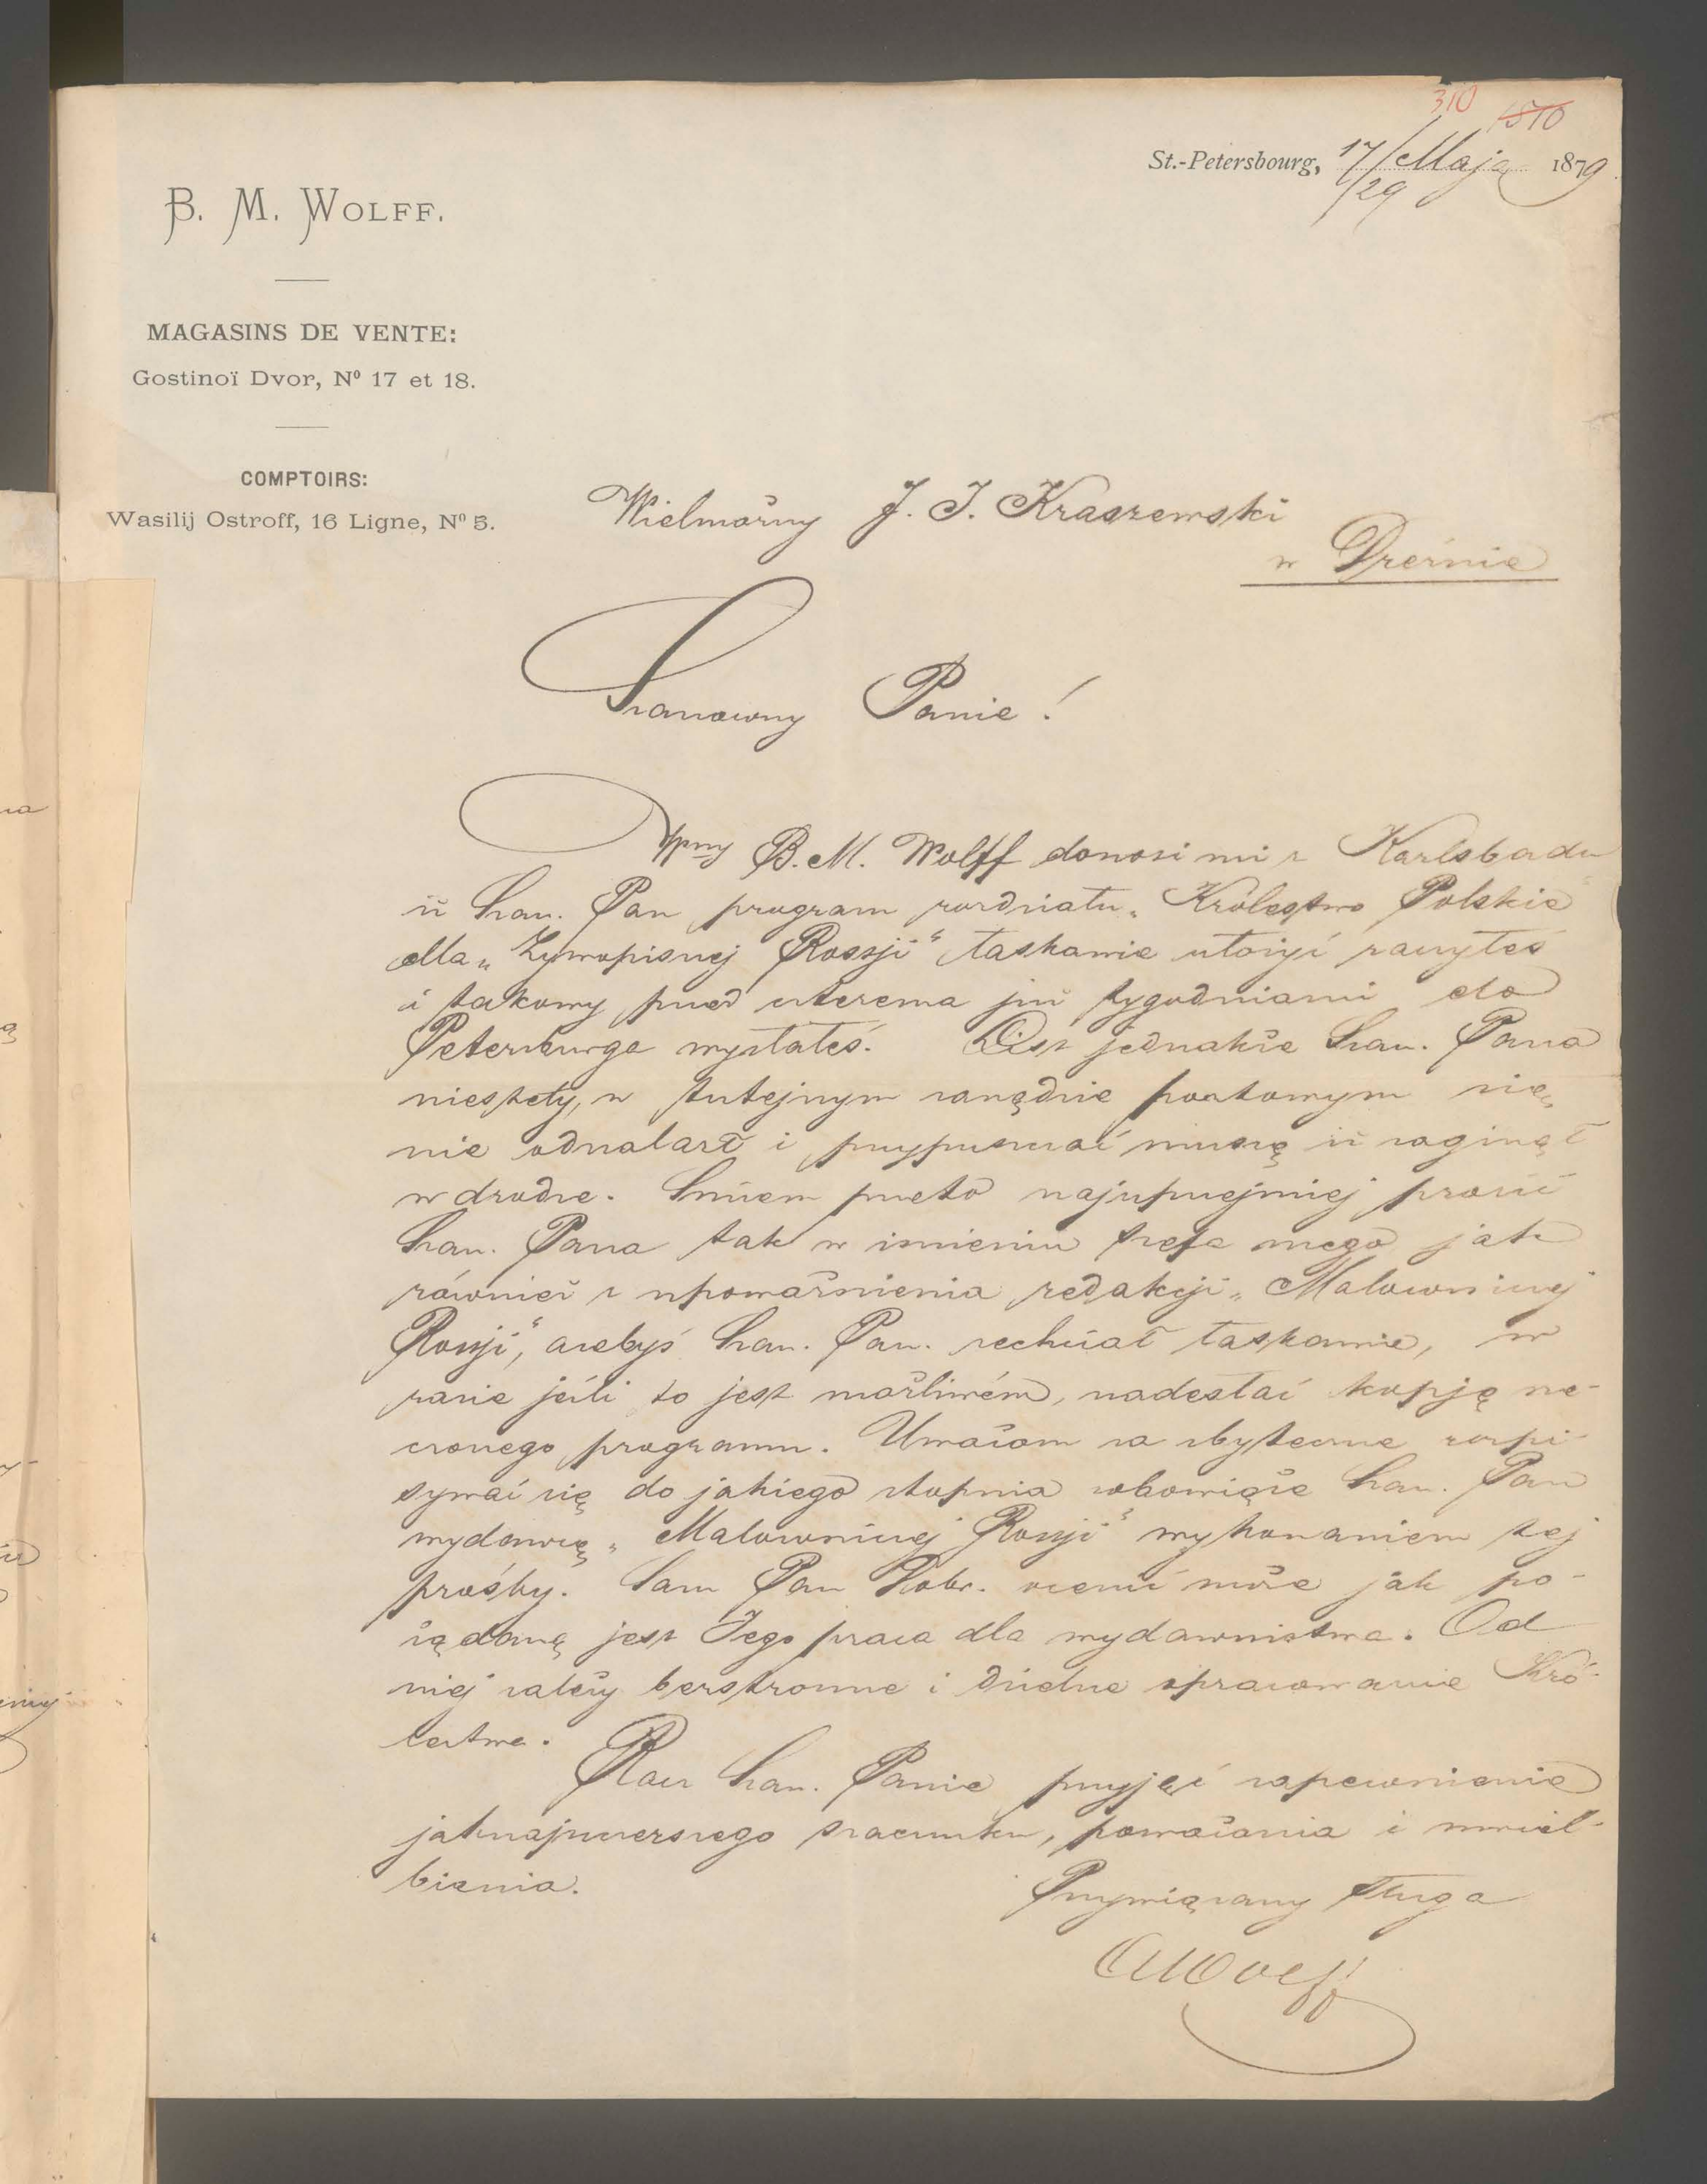 310 1510
St.-Petersbourg, 17/29 Maja 1879
B. M. WOLFF.
MAGASINS DE VENTE:
Gostinoï Dvor, Nº 17 et 18.
COMPTOIRS:
Wasilij Ostroff, 16 Ligne, Nº 5.
Wielmożny J. I. Kraszewski
w Dreźnie
Szanowny Panie!
Wpny B. M. Wolff donosi mi z Karlsbadu
iż Szan. Pan program rozdziału „Królestwo Polskie"
dla „Żywopisnej Rossji" łaskawie ułożyć raczyłeś
i takowy przed czterema już tygodniami do
Petersburga wysłałeś. List jednakże Szan. Pana
niestety, w tutejszym zarządzie pocztowym się
nie odnalazł i przypuszczać muszę iż zaginął
w drodze. Śmiem przeto najuprzejmiej prosić
Szan. Pana tak w imieniu szefa mego jak
również z upoważnienia redakcji „Malowniczej
Rossji", ażebyś Szan. Pan. zechciał łaskawie, w
razie jeśli to jest możliwém, nadesłać kopję rze-
czonego programu. Uważam za zbyteczne rozpi-
sywać się do jakiego stopnia zobowiąże Szan. Pan
wydawcę „Malowniczej Rossji" wykonaniem tej
prośby. Sam Pan Dobr. ocenić może jak po-
żądaną jest Jego praca dla wydawnictwa. Od
niej zależy bezstronne i dzielne opracowanie Kró-
lestwa.
Racz Szan. Panie przyjąć zapewnienie
jaknajszczerszego szacunku, poważania i uwiel-
bienia.
Przywiązany sługa
AWolff